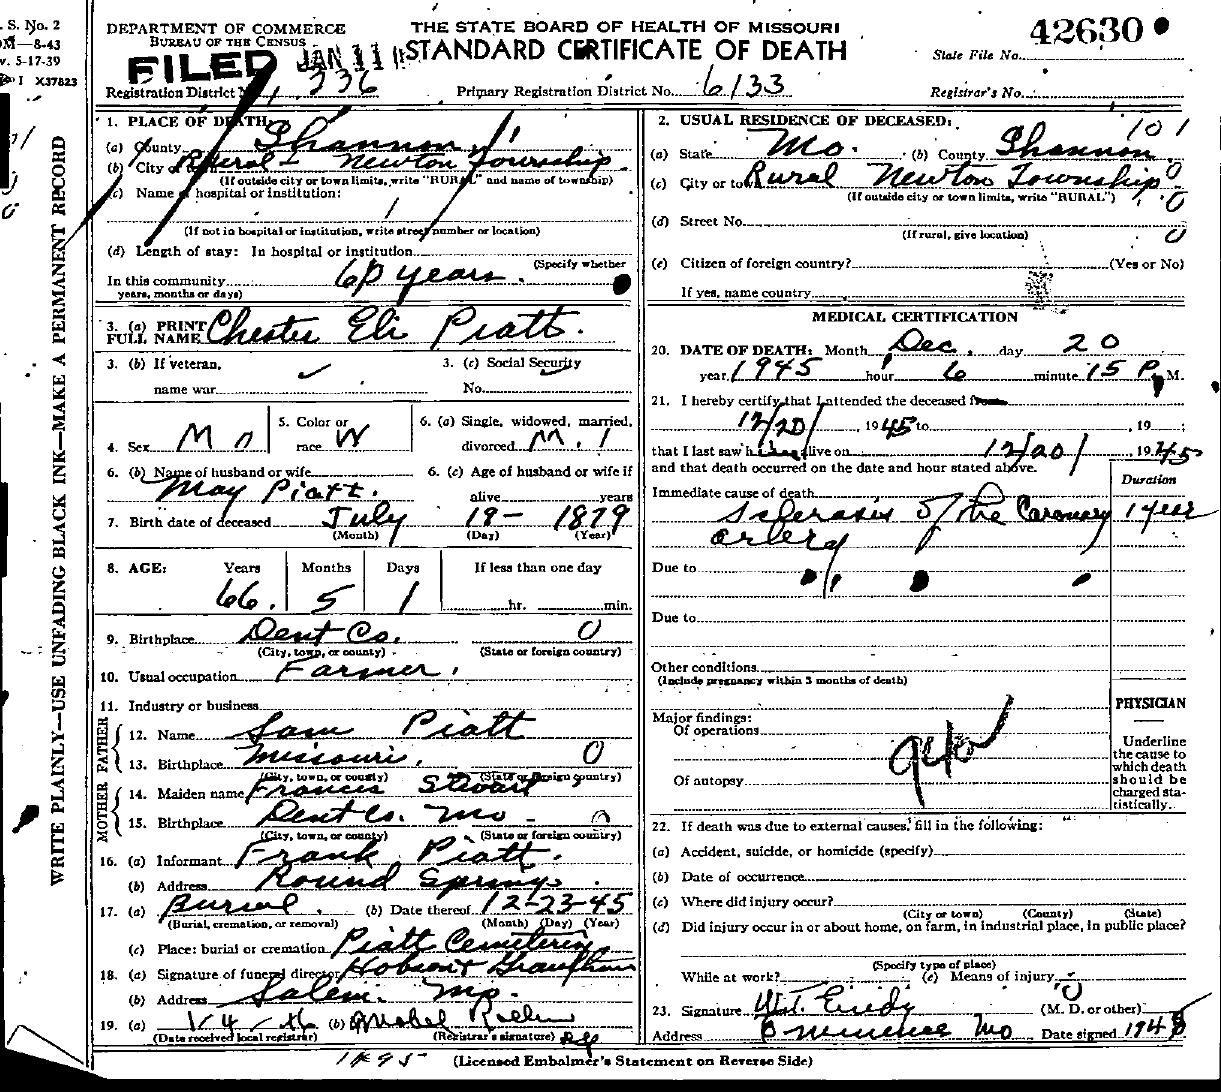 S. No. 2
M—8-43
v. 5-17-39
I X37823
WRITE PLAINLY—USE UNFADING BLACK INK—MAKE A PERMANENT RECORD
DEPARTMENT OF COMMERCE
BUREAU OF THE CENSUS
FILED JAN 11
THE STATE BOARD OF HEALTH OF MISSOURI
STANDARD CERTIFICATE OF DEATH
State File No. 42630
Registration District 336
Primary Registration District No. 6133
Registrar's No.
1. PLACE OF DEATH:
(a) County Shannon
(b) City or town Rural - Newton Township
(If outside city or town limits, write "RURAL" and name of township)
(c) Name of hospital or institution:
(If not in hospital or institution, write street number or location)
(d) Length of stay: In hospital or institution
(Specify whether
In this community 60 years.
years, months or days)
3. (a) PRINT FULL NAME Chester Eli Piatt.
3. (b) If veteran, name war
3. (c) Social Security No.
4. Sex M
5. Color or race W
6. (a) Single, widowed, married, divorced M.
6. (b) Name of husband or wife May Piatt.
6. (c) Age of husband or wife if alive years
7. Birth date of deceased July 19- 1879
(Month) (Day) (Year)
8. AGE: Years Months Days If less than one day
66. 5 1 hr. min.
9. Birthplace Dent Co. 0
(City, town, or county) (State or foreign country)
10. Usual occupation Farmer.
11. Industry or business
FATHER
12. Name Sam Piatt
13. Birthplace Missouri. 0
(City, town, or county) (State or foreign country)
MOTHER
14. Maiden name Francis Stewart
15. Birthplace Dent Co. Mo - 0
(City, town, or county) (State or foreign country)
16. (a) Informant Frank Piatt.
(b) Address Round Springs.
17. (a) Burial. (b) Date thereof 12-23-45
(Burial, cremation, or removal) (Month) (Day) (Year)
(c) Place: burial or cremation Piatt Cemetery
18. (a) Signature of funeral director
(b) Address Salem. Mo.
19. (a) 1-4-46 (b) Mabel
(Date received local registrar) (Registrar's signature)
2. USUAL RESIDENCE OF DECEASED: 101
(a) State Mo. (b) County Shannon 0
(c) City or town Rural Newton Township 0
(If outside city or town limits, write "RURAL")
(d) Street No. 0
(If rural, give location)
(e) Citizen of foreign country? (Yes or No)
If yes, name country
MEDICAL CERTIFICATION
20. DATE OF DEATH: Month Dec. day 20
year 1945 hour 6 minute 15 P. M.
21. I hereby certify that I attended the deceased from
12/20/, 1945 to , 19 ;
that I last saw h alive on 12/20/, 1945
and that death occurred on the date and hour stated above.
Duration
Immediate cause of death
Sclerosis of the Coronary 1 year
artery
Due to
Due to
Other conditions
(Include pregnancy within 3 months of death)
Major findings:
Of operations
Of autopsy
PHYSICIAN
Underline the cause to which death should be charged statistically.
22. If death was due to external causes, fill in the following:
(a) Accident, suicide, or homicide (specify)
(b) Date of occurrence
(c) Where did injury occur?
(City or town) (County) (State)
(d) Did injury occur in or about home, on farm, in industrial place, in public place?
(Specify type of place)
While at work? (e) Means of injury
23. Signature W.T. Eudy (M. D. or other)
Address Eminence Mo Date signed 194
(Licensed Embalmer's Statement on Reverse Side)